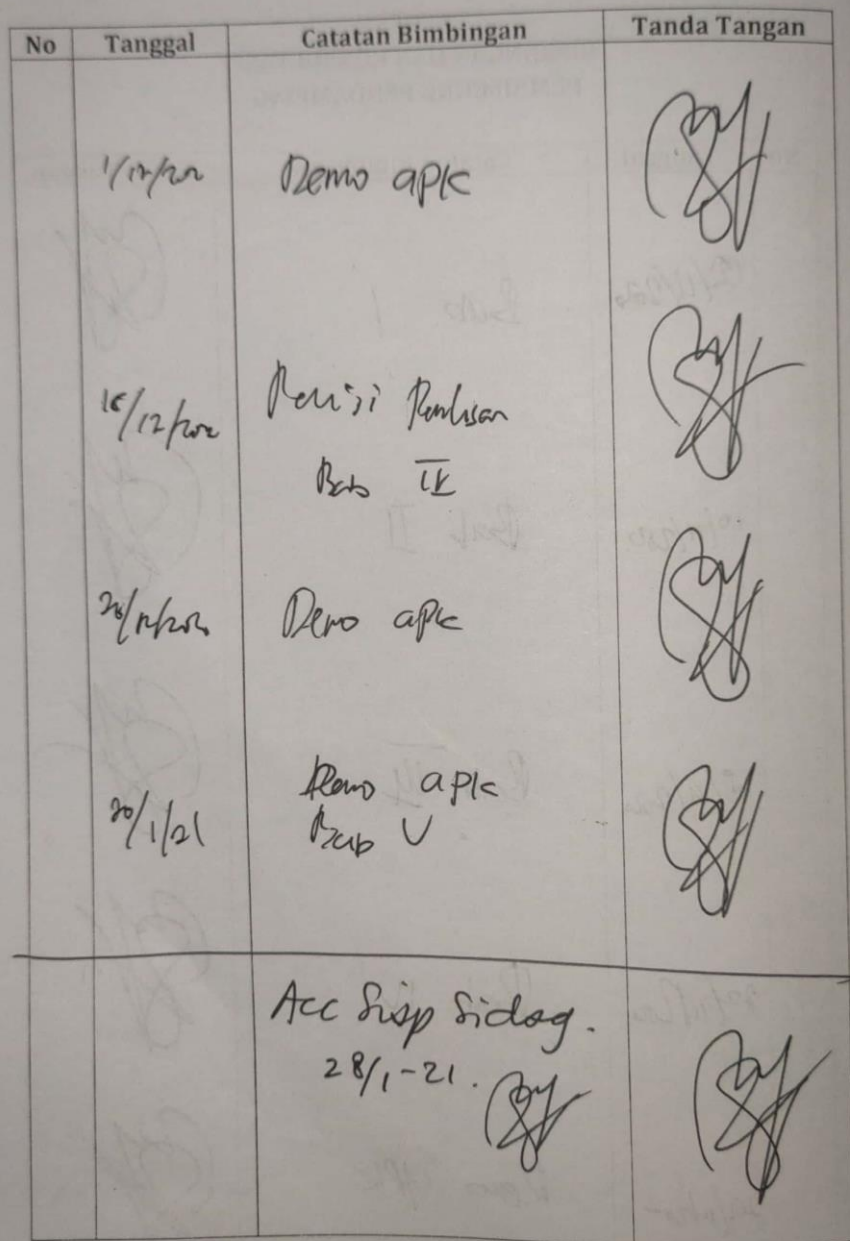 No Tanggal Catatan Bimbingan Tanda Tangan
1/12/202 Demo apk
/12/202 Revisi Penulisan
Bab IV
/12/202 Demo apk
20/1/21 Demo apk
Bab V
Acc Siap Sidag.
28/1-21.